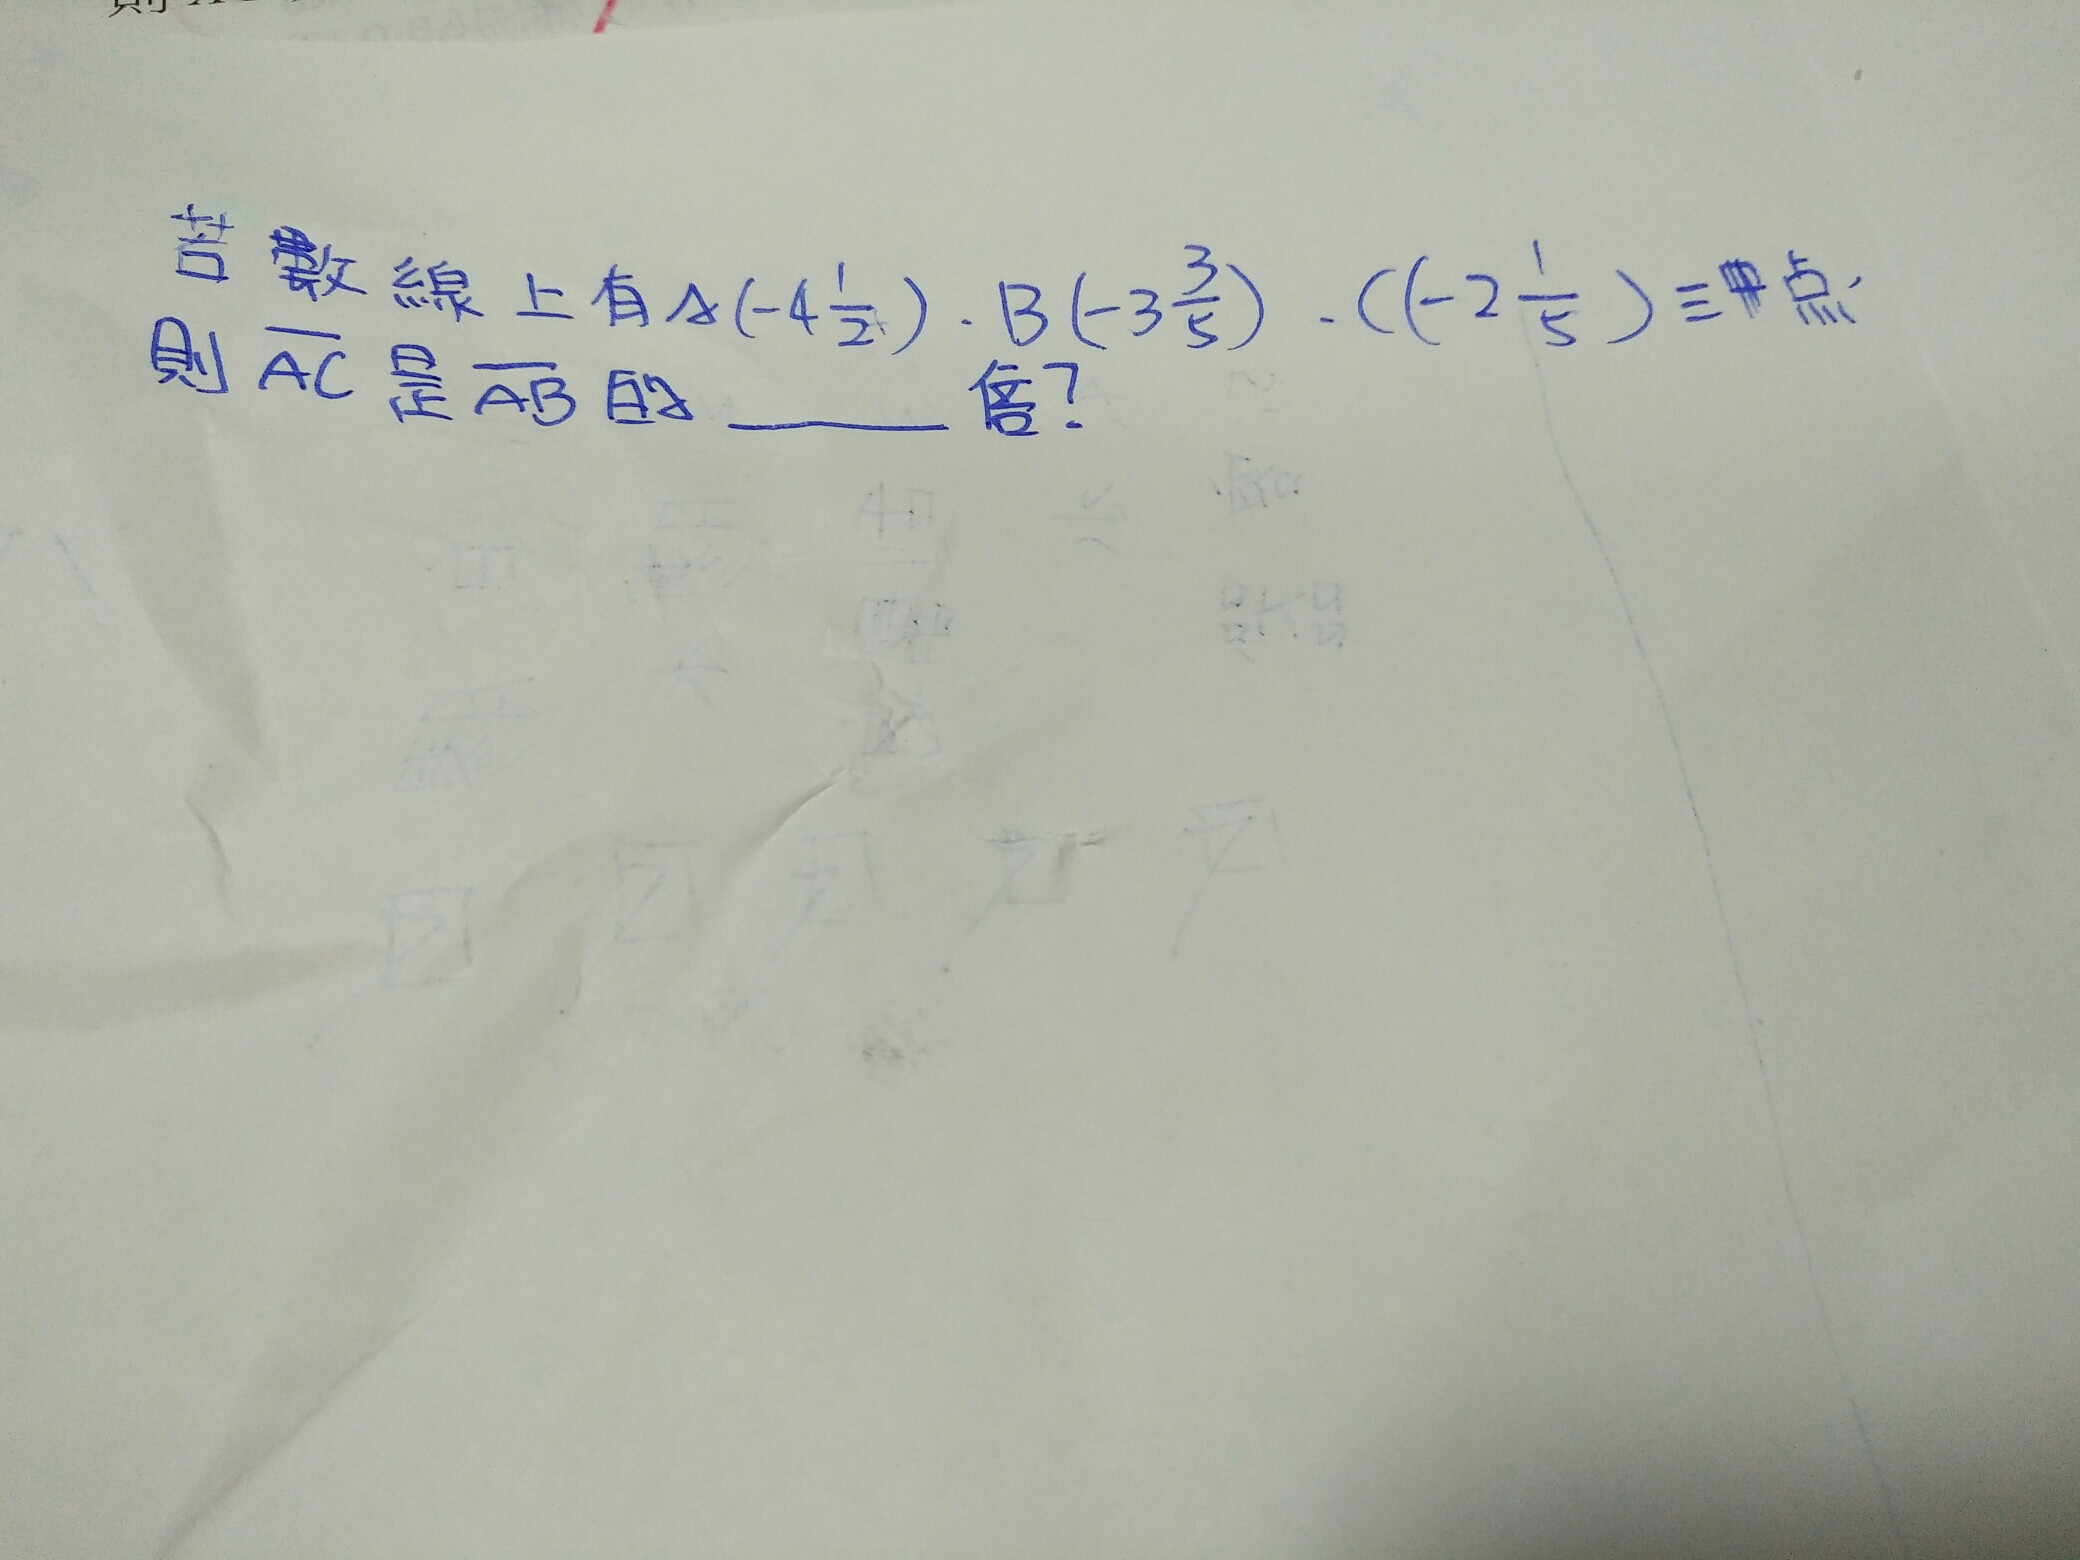 若數線上有A(-4 1/2)、B(-3 3/5)、C(-2 1/5)三点
則 AC 是 AB 的 ______ 倍?